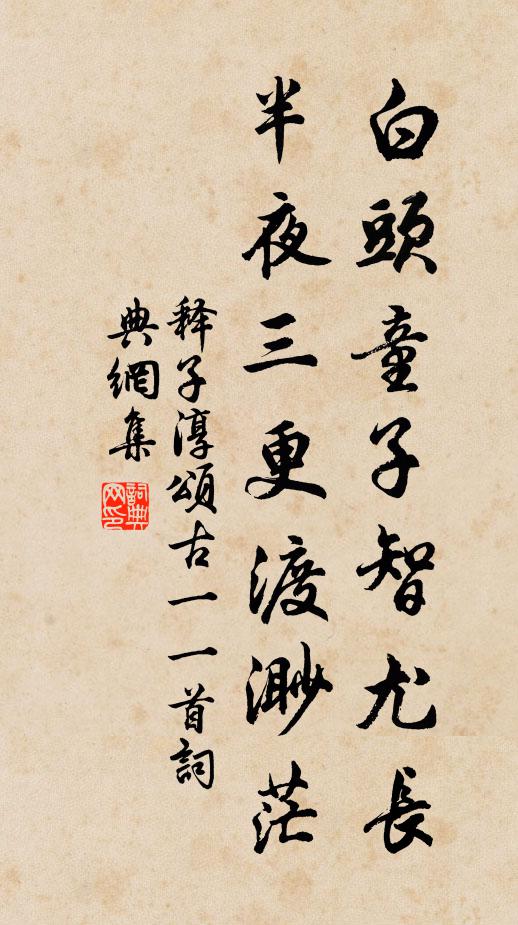 白頭童子智尤長
半夜三更渡渺茫
释子淳頌古一一首詞
典網集
詞典网印